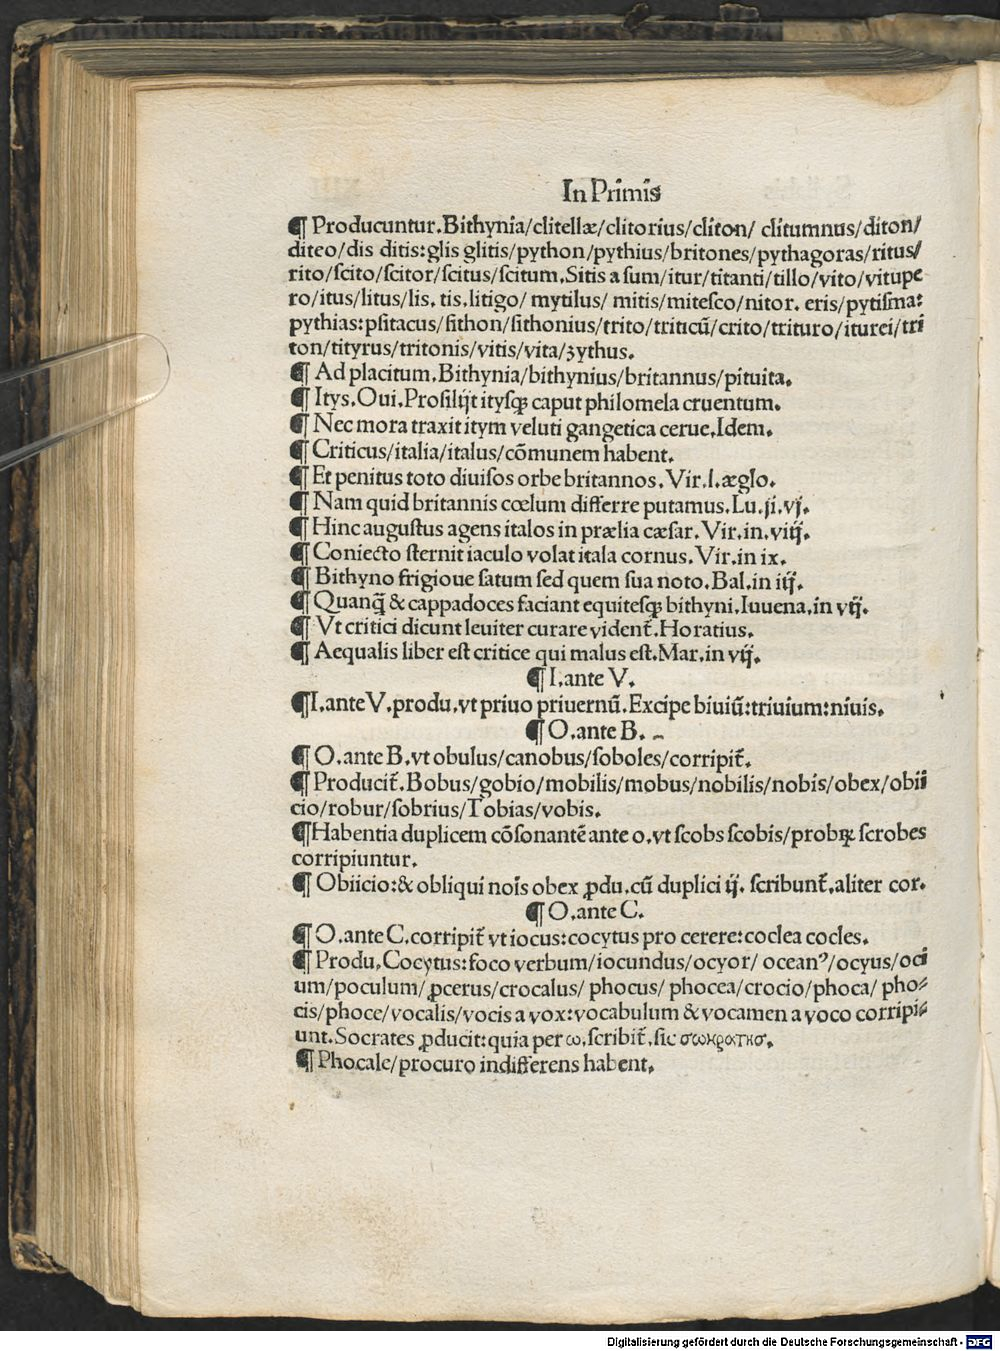 In Primis
¶ Producuntur.Bithynia/clitellæ/clitorius/cliton/ clitumnus/diton/
diteo/dis ditis:glis glitis/python/pythius/britones/pythagoras/ritus/
rito/scito/scitor/scitus/scitum.Sitis a sum/itur/titanti/tillo/vito/vitupe
ro/itus/litus/lis. tis.litigo/ mytilus/ mitis/mitesco/nitor. eris/pytisma:
pythias:psitacus/sithon/sithonius/trito/triticū/crito/trituro/iturei/tri
ton/tityrus/tritonis/vitis/vita/zythus.
¶ Ad placitum.Bithynia/bithynius/britannus/pituita.
¶ Itys.Oui.Prosilijt itysqꝫ caput philomela cruentum.
¶ Nec mora traxit itym veluti gangetica cerue.Idem.
¶ Criticus/italia/italus/cōmunem habent.
¶ Et penitus toto diuisos orbe britannos. Vir.i.æglo.
¶ Nam quid britannis cœlum differre putamus.Lu.ji.vj.
¶ Hinc augustus agens italos in prælia cæsar. Vir.in.viij.
¶ Coniecto sternit iaculo volat itala cornus. Vir.in ix.
¶ Bithyno frigioue satum sed quem sua noto.Bal.in iij.
¶ Quanq̄ & cappadoces faciant equitesqꝫ bithyni.Iuuena.in vij.
¶ Vt critici dicunt leuiter curare vident̄.Horatius.
¶ Aequalis liber est critice qui malus est.Mar.in vij.
¶ I.ante V.
¶I.ante V.produ.vt priuo priuernū.Excipe biuiū:triuium:niuis.
¶ O.ante B.
¶ O.ante B.vt obulus/canobus/soboles/corripit̄.
¶ Producit̄.Bobus/gobio/mobilis/mobus/nobilis/nobis/obex/obii
cio/robur/sobrius/Tobias/vobis.
¶Habentia duplicem cōsonantē ante o.vt scobs scobis/probꝝ scrobes
corripiuntur.
¶ Obiicio:& obliqui nois obex ꝓdu.cū duplici ij. scribunt̄.aliter cor.
¶ O.ante C.
¶ O.ante C.corripit̄ vt iocus:cocytus pro cerere:coclea cocles.
¶ Produ.Cocytus:foco verbum/iocundus/ocyor/ oceanꝰ/ocyus/oci
um/poculum/ꝓcerus/crocalus/ phocus/ phocea/crocio/phoca/ pho⸗
cis/phoce/vocalis/vocis a vox:vocabulum & vocamen a voco corripi⸗
unt.Socrates ꝓducit:quia per ω.scribit̄.sic σωκρατησ.
¶ Phocale/procuro indifferens habent.
Digitalisierung gefördert durch die Deutsche Forschungsgemeinschaft - DFG